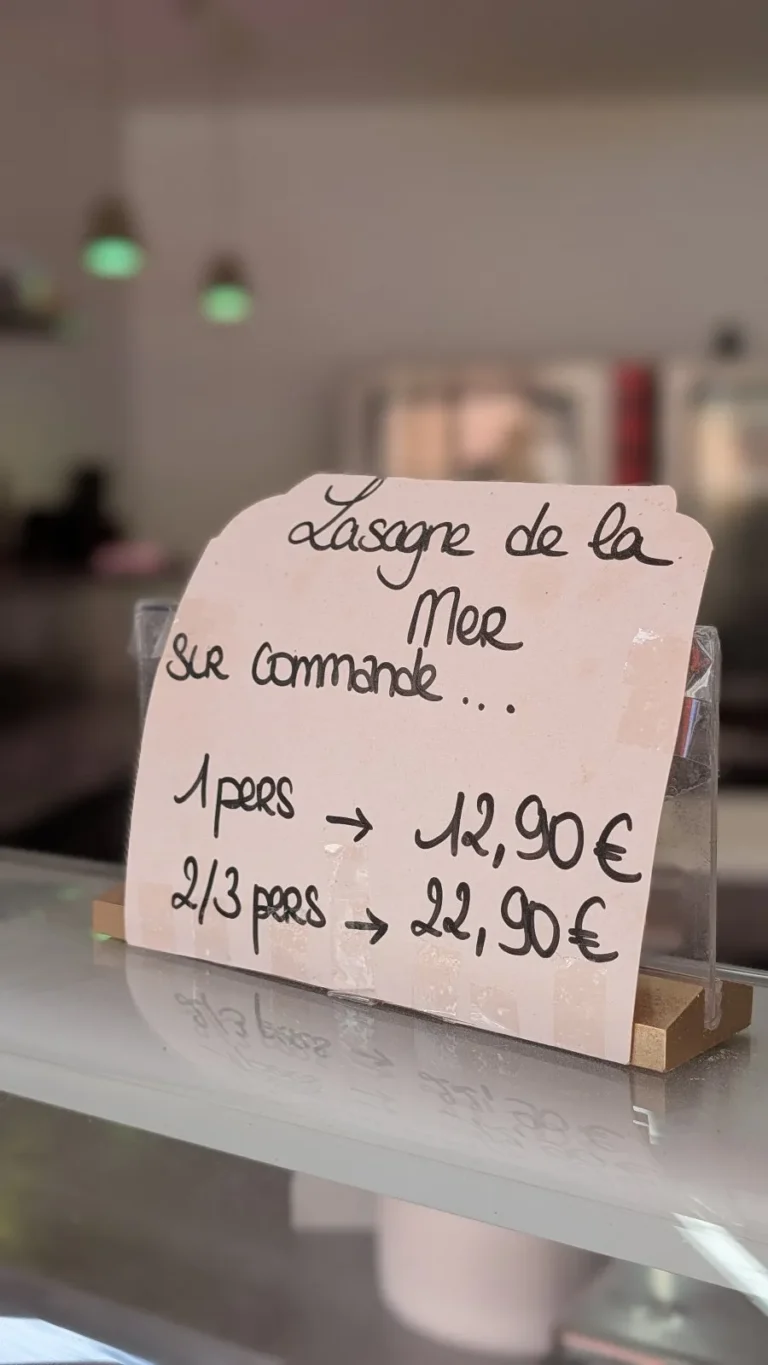 Lasagne de la
Mer
sur commande...
1 pers → 12,90€
2/3 pers → 22,90€